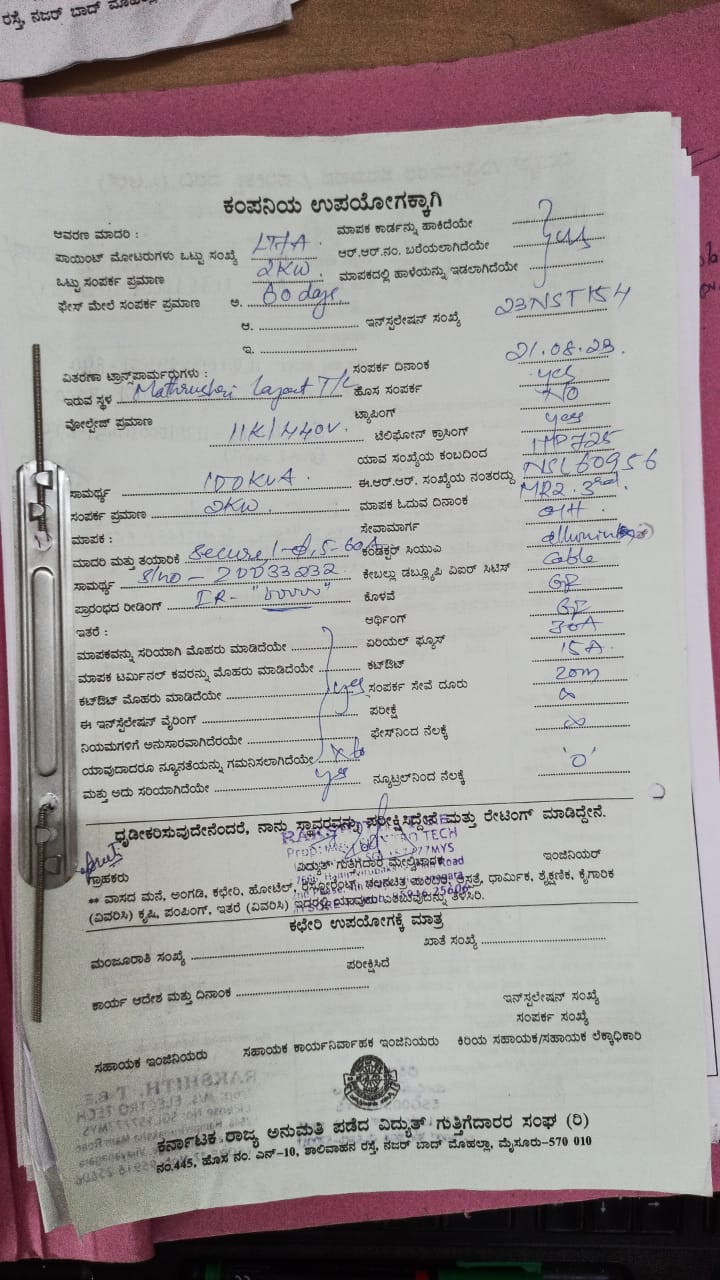 ರಸ್ತೆ, ನಜರ್ ಬಾದ್ ಮೊಹಲ್ಲಾ
ಕಂಪನಿಯ ಉಪಯೋಗಕ್ಕಾಗಿ
ಆವರಣ ಮಾದರಿ : ಮಾಪಕ ಕಾರ್ಡನ್ನು ಹಾಕಿದೆಯೇ
ಪಾಯಿಂಟ್ ಮೋಟರುಗಳು ಒಟ್ಟು ಸಂಖ್ಯೆ ಆರ್.ಆರ್.ನಂ. ಬರೆಯಲಾಗಿದೆಯೇ yes
ಒಟ್ಟು ಸಂಪರ್ಕ ಪ್ರಮಾಣ 2KW ಮಾಪಕದಲ್ಲಿ ಹಾಳೆಯನ್ನು ಇಡಲಾಗಿದೆಯೇ
ಫೇಸ್ ಮೇಲೆ ಸಂಪರ್ಕ ಪ್ರಮಾಣ ಅ. 60 days
ಆ. ಇನ್‌ಸ್ಟಲೇಷನ್ ಸಂಖ್ಯೆ 23NST154
ಇ.
ವಿತರಣಾ ಟ್ರಾನ್ಸ್‌ಪಾರ್ಮರುಗಳು : ಸಂಪರ್ಕ ದಿನಾಂಕ 21.08.23.
ಇರುವ ಸ್ಥಳ Mathrushri Layout T/C ಹೊಸ ಸಂಪರ್ಕ yes
ವೋಲ್ಟೇಜ್ ಪ್ರಮಾಣ 11K/440V. ಟ್ಯಾಪಿಂಗ್ No
ಟೆಲಿಫೋನ್ ಕ್ರಾಸಿಂಗ್ yes
ಯಾವ ಸಂಖ್ಯೆಯ ಕಂಬದಿಂದ
ಸಾಮರ್ಥ್ಯ 100KVA. ಈ.ಆರ್.ಆರ್. ಸಂಖ್ಯೆಯ ನಂತರದ್ದು NSL60956
ಸಂಪರ್ಕ ಪ್ರಮಾಣ 2KW. ಮಾಪಕ ಓದುವ ದಿನಾಂಕ MR2. 3rd.
ಮಾಪಕ : ಸೇವಾಮಾರ್ಗ O/H
ಮಾದರಿ ಮತ್ತು ತಯಾರಿಕೆ Secure 1-Φ, 5-60A ಕಂಡಕ್ಟರ್ ಸಿಯುಎ
ಸಾಮರ್ಥ್ಯ S/no - 20033232 ಕೇಬಲ್ಲು ಡಬ್ಲ್ಯೂಪಿ ವಿಐರ್ ಸಿಟಿಸ್ Cable
ಪ್ರಾರಂಭದ ರೀಡಿಂಗ್ IR- "00000" ಕೊಳವೆ GP
ಇತರೆ : ಆರ್ಥಿಂಗ್ GP
ಮಾಪಕವನ್ನು ಸರಿಯಾಗಿ ಮೊಹರು ಮಾಡಿದೆಯೇ ಏರಿಯಲ್ ಫ್ಯೂಸ್ 30A
ಮಾಪಕ ಟರ್ಮಿನಲ್ ಕವರನ್ನು ಮೊಹರು ಮಾಡಿದೆಯೇ ಕಟ್‌ಔಟ್ 15A.
ಕಟ್‌ಔಟ್ ಮೊಹರು ಮಾಡಿದೆಯೇ yes ಸಂಪರ್ಕ ಸೇವೆ ದೂರು 20m
ಈ ಇನ್‌ಸ್ಟೆಲೇಷನ್ ವೈರಿಂಗ್ ಪರೀಕ್ಷೆ ∞
ನಿಯಮಗಳಿಗೆ ಅನುಸಾರವಾಗಿದೆರಯೇ ಫೇಸ್‌ನಿಂದ ನೆಲಕ್ಕೆ ∞
ಯಾವುದಾದರೂ ನ್ಯೂನತೆಯನ್ನು ಗಮನಿಸಲಾಗಿದೆಯೇ No
ಮತ್ತು ಅದು ಸರಿಯಾಗಿದೆಯೇ yes ನ್ಯೂಟ್ರಲ್‌ನಿಂದ ನೆಲಕ್ಕೆ '0'
ಧೃಡೀಕರಿಸುವುದೇನೆಂದರೆ, ನಾನು ಸ್ಥಾವರವನ್ನು ಪರೀಕ್ಷಿಸಿದ್ದೇನೆ ಮತ್ತು ರೇಟಿಂಗ್ ಮಾಡಿದ್ದೇನೆ.
ಗ್ರಾಹಕರು ವಿದ್ಯುತ್ ಗುತ್ತಿಗೆದಾರ ಮೇಲ್ವಿಚಾರಕ ಇಂಜಿನಿಯರ್
** ವಾಸದ ಮನೆ, ಅಂಗಡಿ, ಕಛೇರಿ, ಹೋಟೆಲ್, ರೆಸ್ಟೋರೆಂಟ್, ಚಲನಚಿತ್ರ ಮಂದಿರ, ಆಸ್ಪತ್ರೆ, ಧಾರ್ಮಿಕ, ಶೈಕ್ಷಣಿಕ, ಕೈಗಾರಿಕ
(ವಿವರಿಸಿ) ಕೃಷಿ, ಪಂಪಿಂಗ್, ಇತರೆ (ವಿವರಿಸಿ) ಇದರಲ್ಲಿ ಯಾವುದು ಎಂಬುವುದನ್ನು ತಿಳಿಸಿರಿ.
ಕಛೇರಿ ಉಪಯೋಗಕ್ಕೆ ಮಾತ್ರ
ಮಂಜೂರಾತಿ ಸಂಖ್ಯೆ ಖಾತೆ ಸಂಖ್ಯೆ
ಪರೀಕ್ಷಿಸಿದೆ
ಕಾರ್ಯ ಆದೇಶ ಮತ್ತು ದಿನಾಂಕ
ಇನ್‌ಸ್ಟಲೇಷನ್ ಸಂಖ್ಯೆ
ಸಂಪರ್ಕ ಸಂಖ್ಯೆ
ಸಹಾಯಕ ಇಂಜಿನಿಯರು ಸಹಾಯಕ ಕಾರ್ಯನಿರ್ವಾಹಕ ಇಂಜಿನಿಯರು ಕಿರಿಯ ಸಹಾಯಕ/ಸಹಾಯಕ ಲೆಕ್ಕಾಧಿಕಾರಿ
ಕರ್ನಾಟಕ ರಾಜ್ಯ ಅನುಮತಿ ಪಡೆದ ವಿದ್ಯುತ್ ಗುತ್ತಿಗೆದಾರರ ಸಂಘ (ರಿ)
ನಂ.445, ಹೊಸ ನಂ. ಎನ್-10, ಶಾಲಿವಾಹನ ರಸ್ತೆ, ನಜರ್ ಬಾದ್ ಮೊಹಲ್ಲಾ, ಮೈಸೂರು-570 010